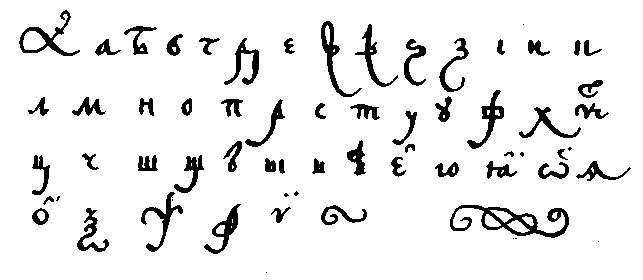 А а б в г д е ж ж ѕ з і и к
л м н о п р с т у ꙋ ф х ѿ
ц ч ш щ ъ ы ь ѣ е҄ ю ꙗ ѡ̈ ѧ
ӧ ѯ ѱ ѳ ѵ̈